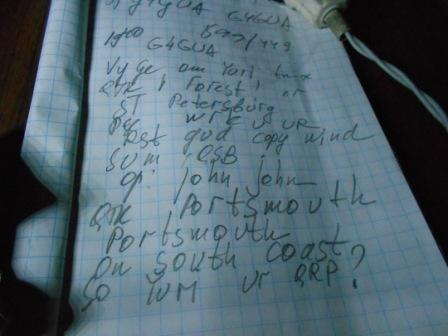 G4GUA G4GUA
1400 599/449
G4GUA
Vy Ge om Yuri tnx
QTH Forest nr
ST Petersburg
wrk u ur
Rst gud copy wind
sum QSB
op: john john
QTH Portsmouth
Portsmouth
on south coast
so ium ur QRP?